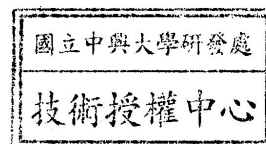 國立中興大學研發處
技術授權中心